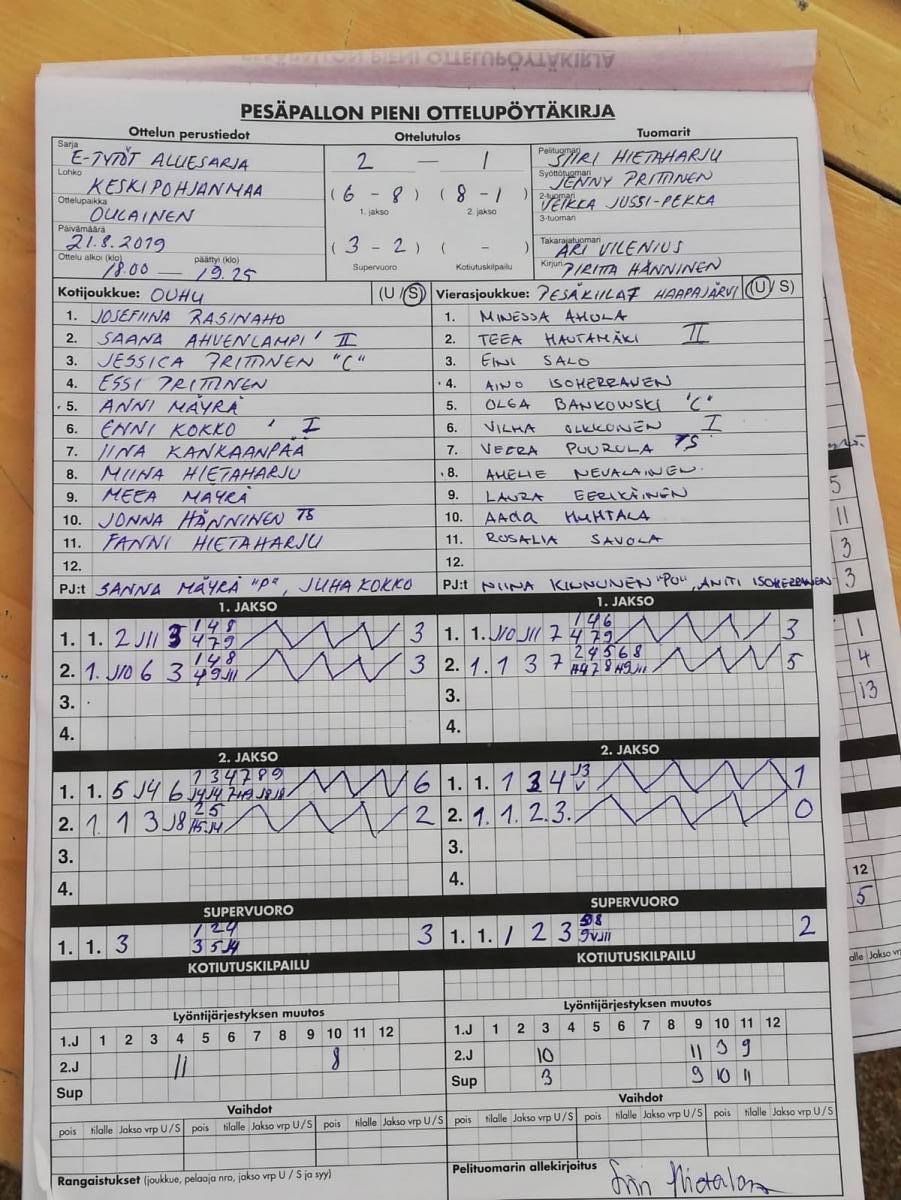 PESÄPALLON PIENI OTTELUPÖYTÄKIRJA
Ottelun perustiedot
Ottelutulos
Tuomarit
Sarja E-TYTÖT ALUESARJA
Lohko KESKIPOHJANMAA
Ottelupaikka OULAINEN
Päivämäärä 21.8.2019
Ottelu alkoi (klo) 18.00 — päättyi (klo) 19.25
2 — 1
(6 - 8) (8 - 1)
1. jakso 2. jakso
(3 - 2) ( - )
Supervuoro Kotiutuskilpailu
Pelituomari SIIRI HIETAHARJU
Syöttötuomari JENNY PRITTINEN
2-tuomari VEIKKA JUSSI-PEKKA
3-tuomari
Takarajatuomari ARI VILENIUS
Kirjuri PIRITTA HÄNNINEN
Kotijoukkue: OUHU (U/S)
1. JOSEFIINA RASINAHO
2. SAANA AHVENLAMPI ' II
3. JESSICA PRITTINEN "C"
4. ESSI PRITTINEN
5. ANNI MÄYRÄ
6. ENNI KOKKO ' I
7. IINA KANKAANPÄÄ
8. MIINA HIETAHARJU
9. MEEA MÄYRÄ
10. JONNA HÄNNINEN TS
11. FANNI HIETAHARJU
12.
PJ:t SANNA MÄYRÄ "P", JUHA KOKKO
Vierasjoukkue: PESÄKIILAT HAAPAJÄRVI (U/S)
1. MINESSA AHOLA
2. TEEA HAUTAMÄKI II
3. EINI SALO
4. AINO ISOHERRANEN
5. OLGA BANKOWSKI "C"
6. VILMA OLKKONEN I
7. VEERA PUURULA TS
8. AMELIE NEVALAINEN
9. LAURA EERIKÄINEN
10. AADA HUHTALA
11. ROSALIA SAVOLA
12.
PJ:t NIINA KINNUNEN "PO", ANTTI ISOHERRANEN
1. JAKSO
1. 1. 2 J11 3 148 479 3
2. 1. J10 6 3 148 49J11 3
3.
4.
1. JAKSO
1. 1. J10 J11 7 146 479 3
2. 1. 1 3 7 24568 5
3.
4.
2. JAKSO
1. 1. 5 J4 6 134789 6
2. 1. 1 3 J8 25 2
3.
4.
2. JAKSO
1. 1. 1 3 4 J3 V 1
2. 1. 1. 2. 3. 0
3.
4.
SUPERVUORO
1. 1. 3 124 35J4 3
SUPERVUORO
1. 1. 1 2 3 2
KOTIUTUSKILPAILU
KOTIUTUSKILPAILU
Lyöntijärjestyksen muutos
1.J 1 2 3 4 5 6 7 8 9 10 11 12
2.J 11 8
Sup
Lyöntijärjestyksen muutos
1.J 1 2 3 4 5 6 7 8 9 10 11 12
2.J 10 11 3 9
Sup 3 9 10 11
Vaihdot
pois tilalle Jakso vrp U/S pois tilalle Jakso vrp U/S pois tilalle Jakso vrp U/S
Vaihdot
pois tilalle Jakso vrp U/S pois tilalle Jakso vrp U/S pois tilalle Jakso vrp U/S
Rangaistukset (joukkue, pelaaja nro, jakso vrp U / S ja syy)
Pelituomarin allekirjoitus
5
11
3
3
1
4
13
12
5
alle Jakso vrp